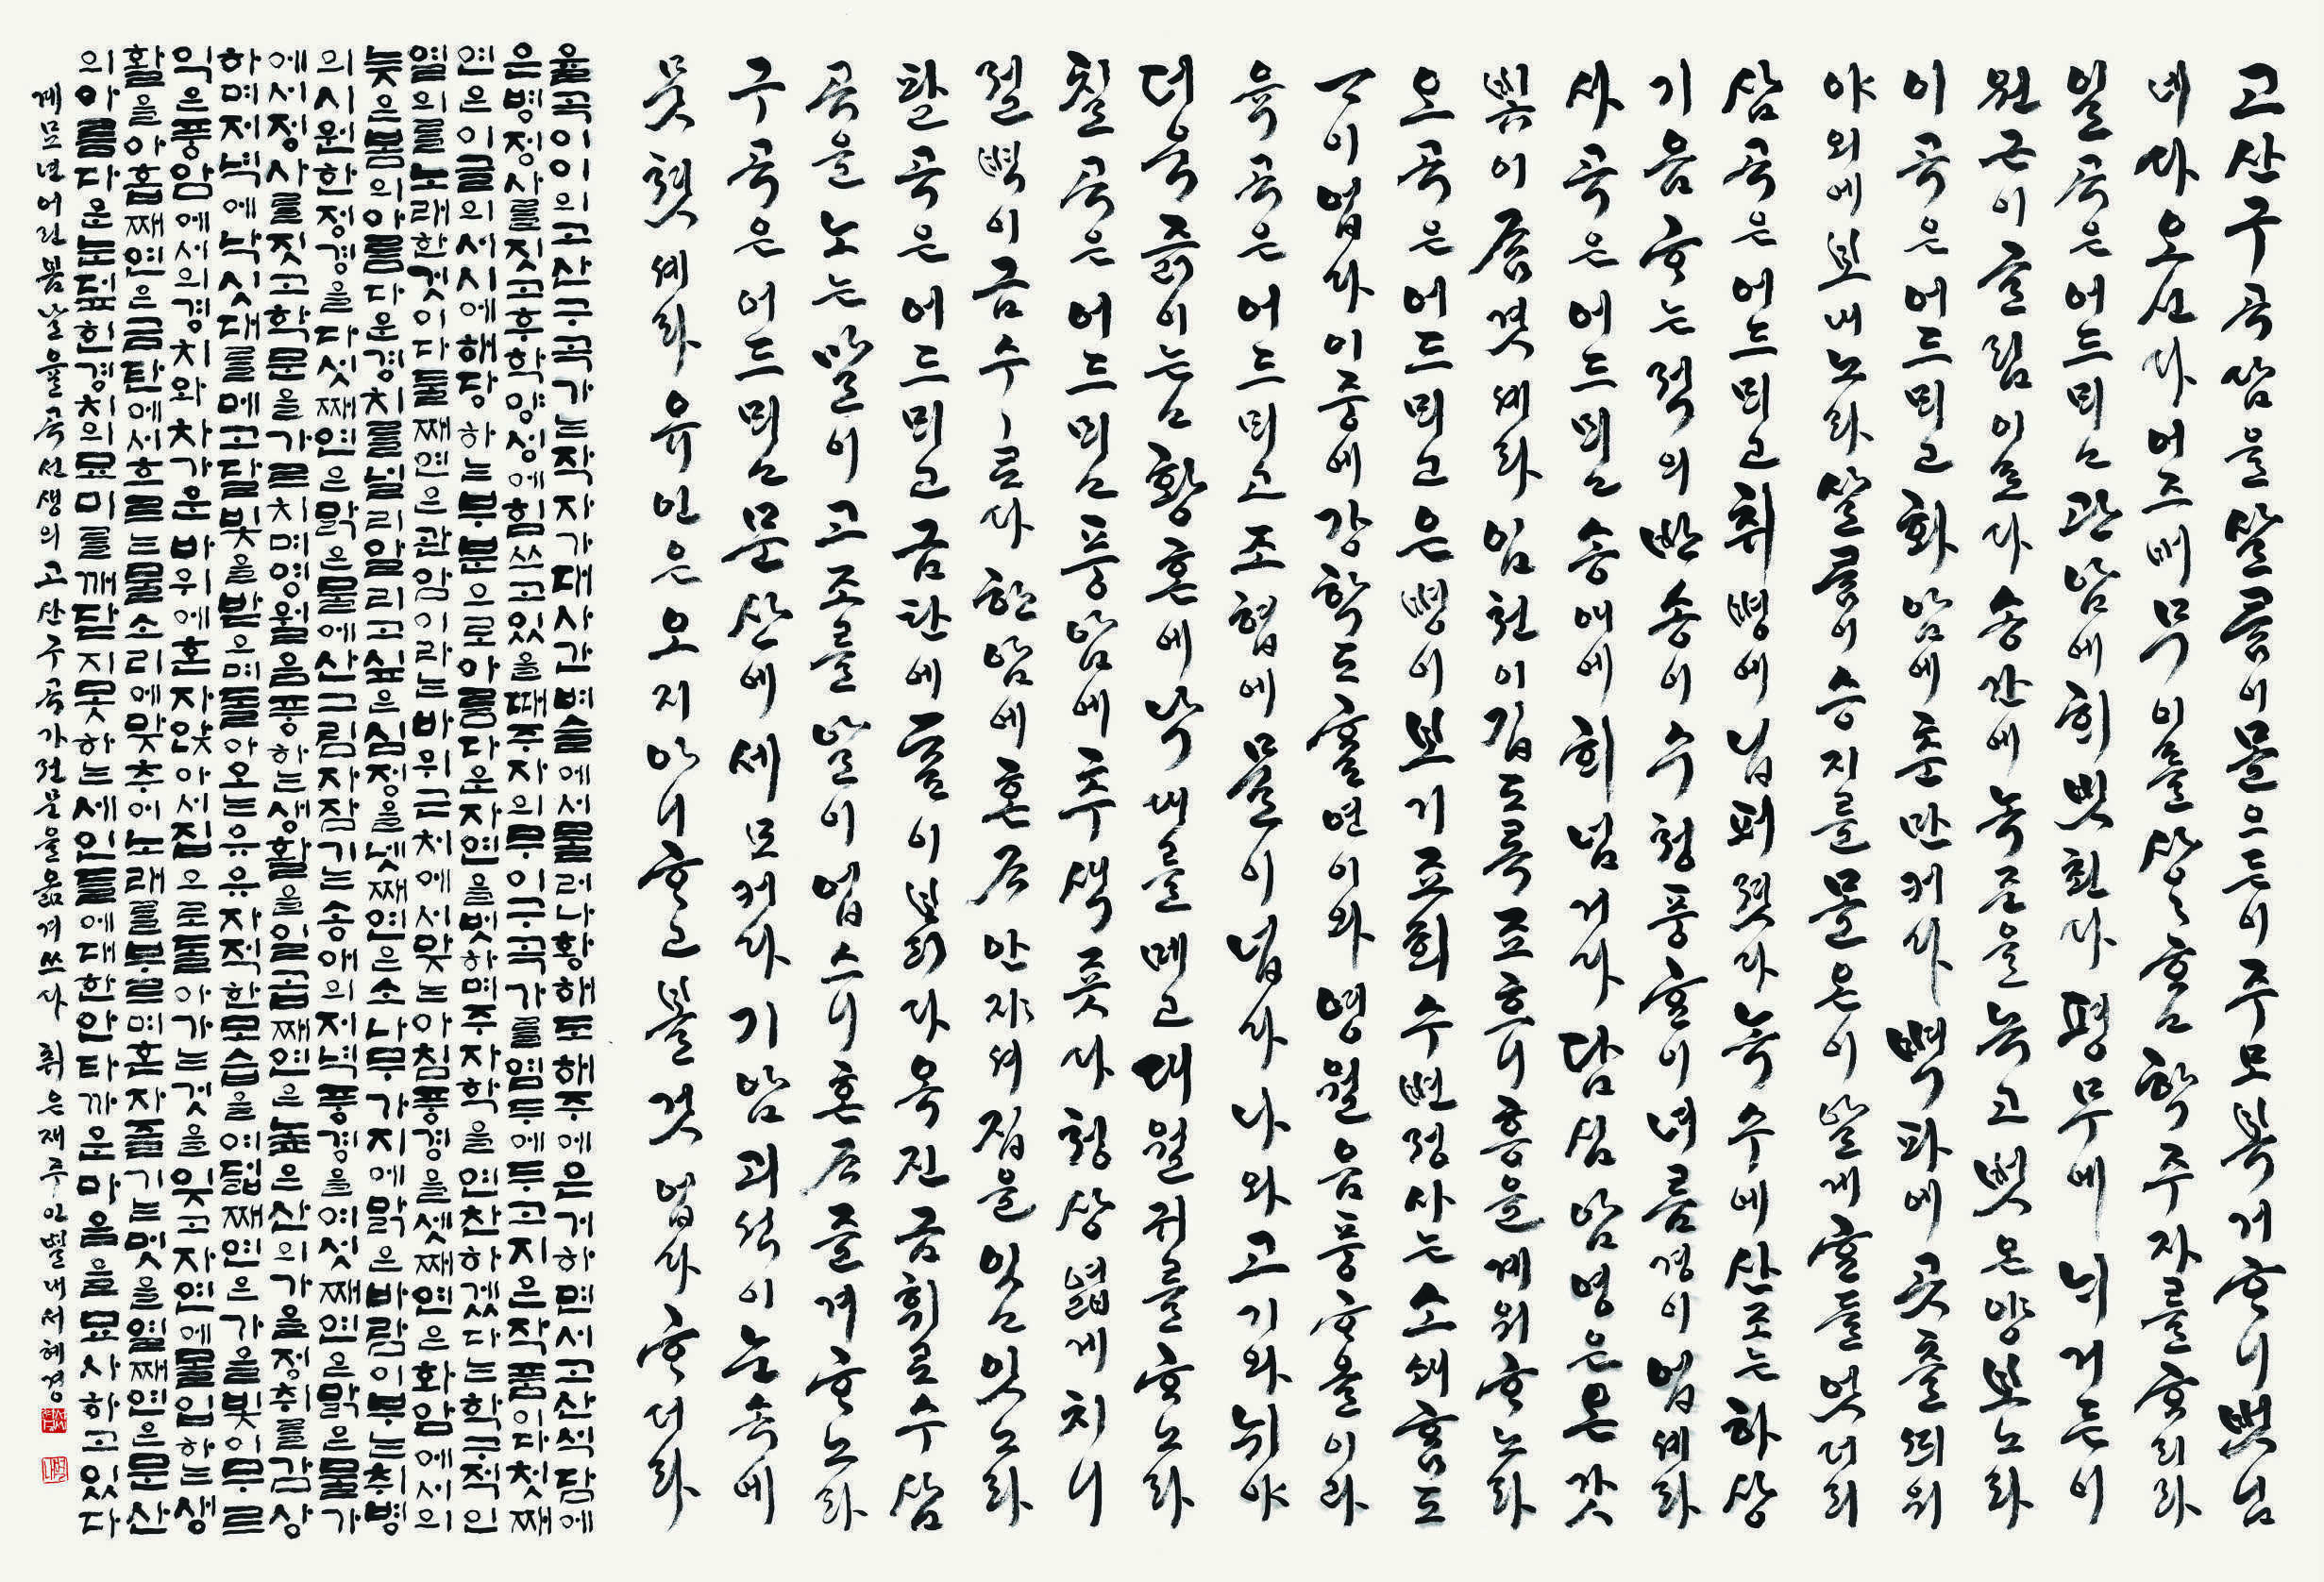 고산구곡담을살름이몰으든이주모복거ᄒᆞ니벗님
네다오신다어즈버무이를상상ᄒᆞ고학주자를ᄒᆞ리라
일곡은어드ᄆᆡ고관암에ᄒᆡ빗쵠다평무에ᄂᆡ거든이
원근이글림이로다송간에녹준을녹고벗온양보노라
이곡은어드ᄆᆡ고화암에춘만커다벽파에곳츨ᄯᅴ워
야외에보내노라살름이승지를몰온이알게ᄒᆞᆫ들엇더리
삼곡은어드ᄆᆡ고취병에닙퍼졋다녹수에산조는하상
기음ᄒᆞ는적의반송이수청풍ᄒᆞᆫ이녀름경이업셰라
사곡은어드ᄆᆡ고송애에ᄒᆡ넘거다담심암영은온갓
빗이ᄌᆞᆷ겻셰라임천이깁도록죠흐니흥을계워ᄒᆞ노라
오곡은어드ᄆᆡ고은병이보기죠희수변정사는소쇄홈도
ᄀᆞ이업다이중에강학도ᄒᆞᆯ연이와영월음풍ᄒᆞ올이라
육곡은어드ᄆᆡ고조협에물이넙다나와고기와뉘야
더욱즑이는고황혼에낙대를메고대월귀를ᄒᆞ노라
칠곡은어드ᄆᆡ고풍암에추색죳타청상엷게치니
절벽이금수ㅣ로다한암에혼ᄌᆞ안쟈셔집을잇고잇노라
팔곡은어드ᄆᆡ고금탄에ᄃᆞᆯ이ᄇᆞᆰ다옥진금휘로수삼
곡을노는말이고조를알이업스니혼ᄌᆞ즐겨ᄒᆞ노라
구곡은어드ᄆᆡ고문산에세모커다기암괴석이눈속에
뭇쳣셰라유인은오지안이ᄒᆞ고볼것업다ᄒᆞ더라
율곡이이의고산구곡가는작자가대사간벼슬에서물러나황해도해주에은거하면서고산석담에
은병정사를짓고후학양성에힘쓰고있을때주자의무이구곡가를염두에두고지은작품이다첫째
연은이글의서시에해당하는부분으로아름다운자연을벗하며주자학을연찬하겠다는학구적인
열의를노래한것이다둘째연은관암이라는바위근처에서맞는아침풍경을셋째연은화암에서의
늦은봄의아름다운경치를널리알리고싶은심정을넷째연은소나무가지에맑은바람이부는취병
의시원한정경을다섯째연은맑은물에산그림자잠기는송애의저녁풍경을여섯째연은맑은물가
에서정사를짓고학문을가르치며영월음풍하는생활을일곱째연은높은산의가을정취를감상
하며저녁에낚싯대를메고달빛을받으며돌아오는유유자적한모습을여덟째연은가을빛이무르
익은풍암에서의경치와차가운바위에혼자앉아서집으로돌아가는것을잊고자연에몰입하는생
활을아홉째연은금탄에서흐르는물소리에맞추어노래를부르며혼자즐기는멋을열째연은문산
의아름다운눈덮힌경치의묘미를깨닫지못하는세인들에대한안타까운마음을묘사하고있다
계묘년어린봄날율곡선생의고산구곡가전문을옮겨쓰다 취은재주인별내서혜경